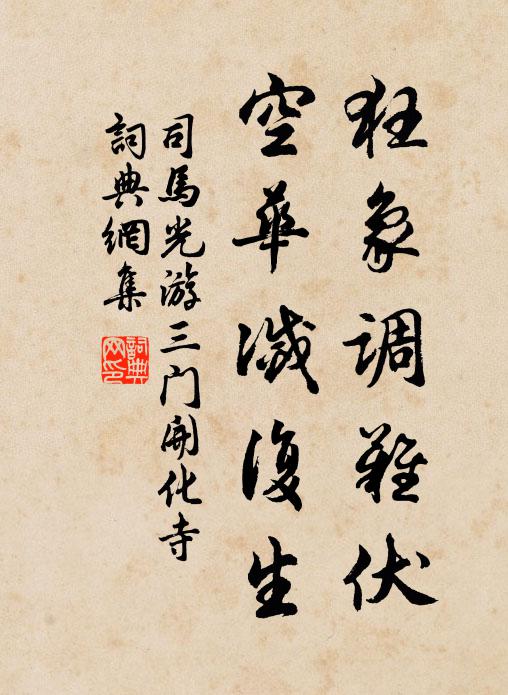 狂象調難伏
空華滅復生
司馬光游三门開化寺
詞典網集
詞典網印